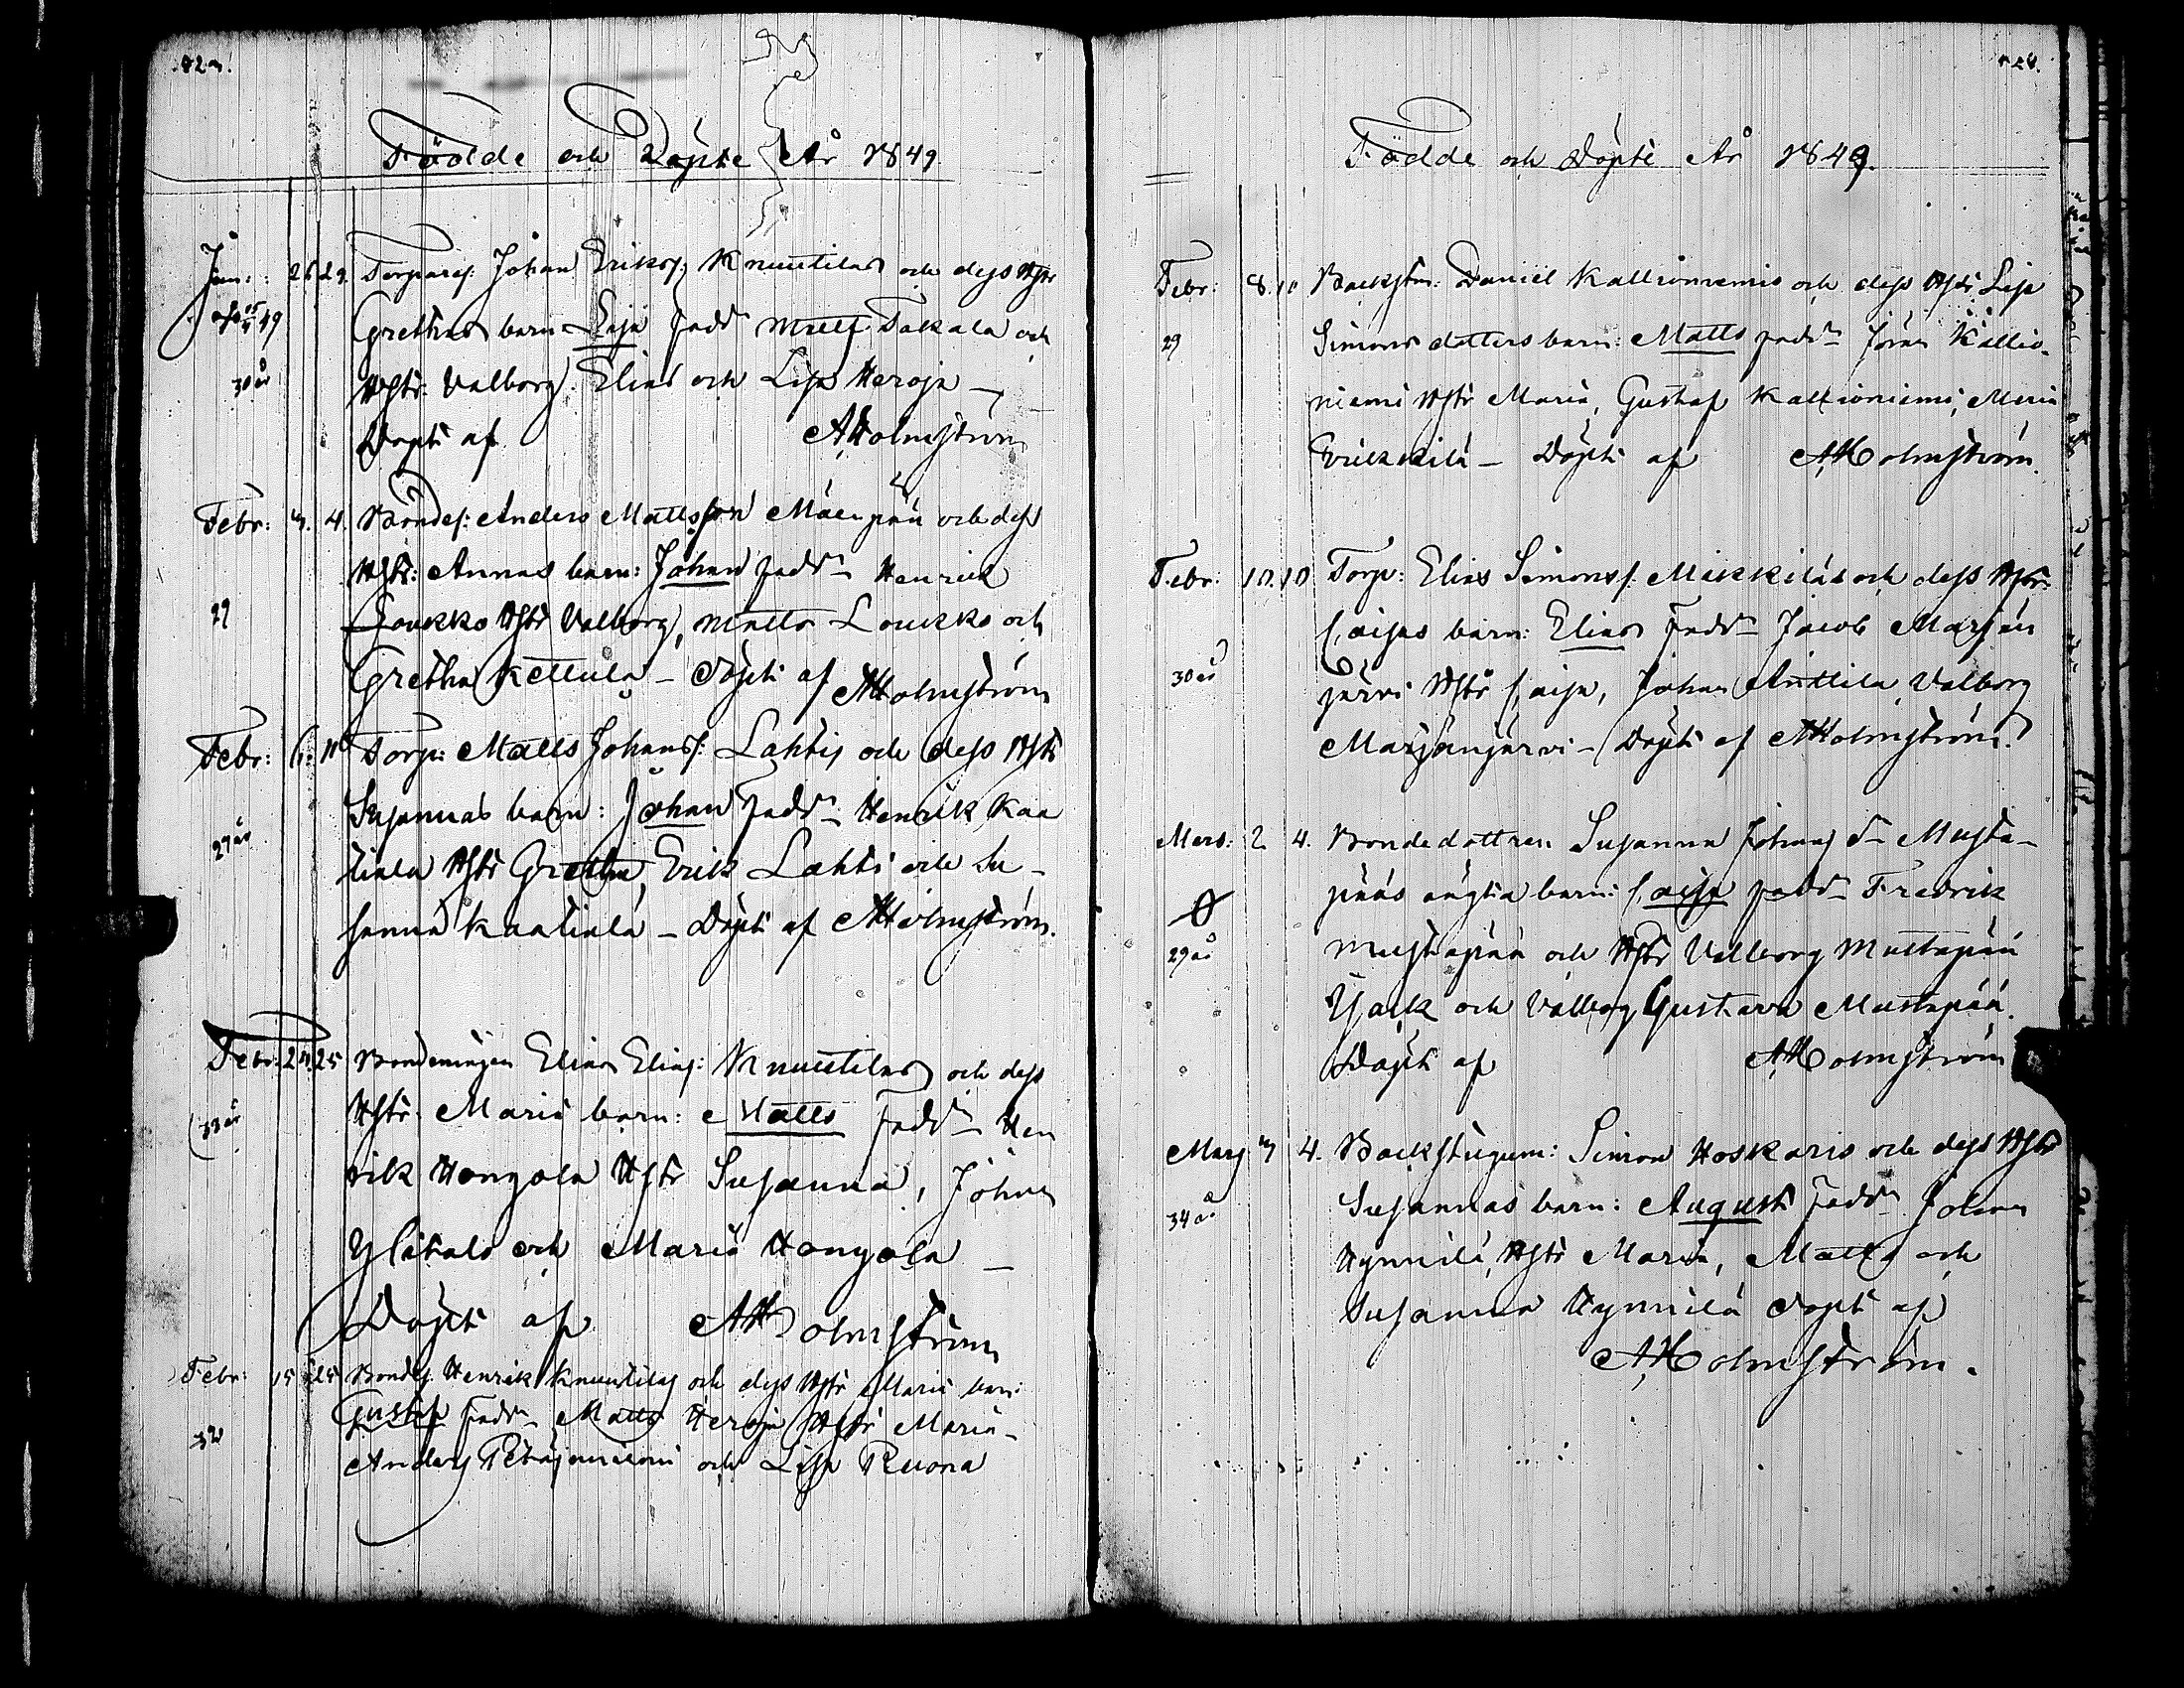 Födde och Döpte År 1849
Jan: 26 29. Torpares: Johan Eriks s: Knuutilas och dess Hstr
Grethas barn Lisa fadd. Matts Takala och
30 år Hstr: Valborg. Elias och Lisa Heroja —
Döpt af AHolmström
Febr: 3. 4. Bondes: Anders Mattsson Mäenpää och dess
Hstr: Annas barn: Johan fadd. Henrick
29 Loukko Hstr Valborg, Matts Loukko och
Gretha Kettula — Döpt af AHolmström
Febr: Torp: Matts Johans s: Lahtis och dess Hstr
Susannas barn: Johan fadd. Henrik Kaa
29 år tiala Hstr Gretha, Erik Lahti och Su-
sanna Kaatiala — Döpt af AHolmström.
Febr: 25 Bondemågen Elias Elias s: Knuutilas och dess
33 år Hstr. Mariä barn: Matts Fadd. Hen
rik Hongola Hstr Susanna, Johan
Ylitalo och Maria Hongola —
Döpt af AHolmström
Febr: 15 25 Bondes Henrik Knuutilas och dess Hstr Mariä barn:
Gustaf Fadd. Matts Heroja Hstr Maria —
32 Anders Petäjäniemi och Lisa Ruona
Födde och Döpte År 1849.
Febr: 8. 10 Backstu: Daniel Kallioniemis och dess Hstr Lisa
29 Simons dotters barn: Matts fadd. Johan Kallio-
niemi Hstr Maria, Gustaf Kallioniemi, Maria
Erikkilä — Döpt af AHolmström.
Febr: 10. 10 Torp: Elias Simons s. Mikkiläs och dess Hstr
Caisas barn: Elias Fadd. Jacob Marjän
30 år järvi Hstr Caisa, Johan Anttila, Valborg
Marjänjärvi — Döpt af AHolmström.
Mars: 2 4. Bondedottren Susanna Johans dr Musta-
pääs oägta barn: Caisa fadd. Fredrik
29 år Mustapää och Hstr Valborg Mustapää
Isak och Valborg Gustava Mustapää.
Döpt af AHolmström
Mars 3 4. Backstugum: Simon Koskaris och dess Hstr
34 år Susannas barn: August Fadd. Johan
Hynnilä, Hstr Maria, Matts och
Susanna Hynnilä Döpt af
AHolmström.